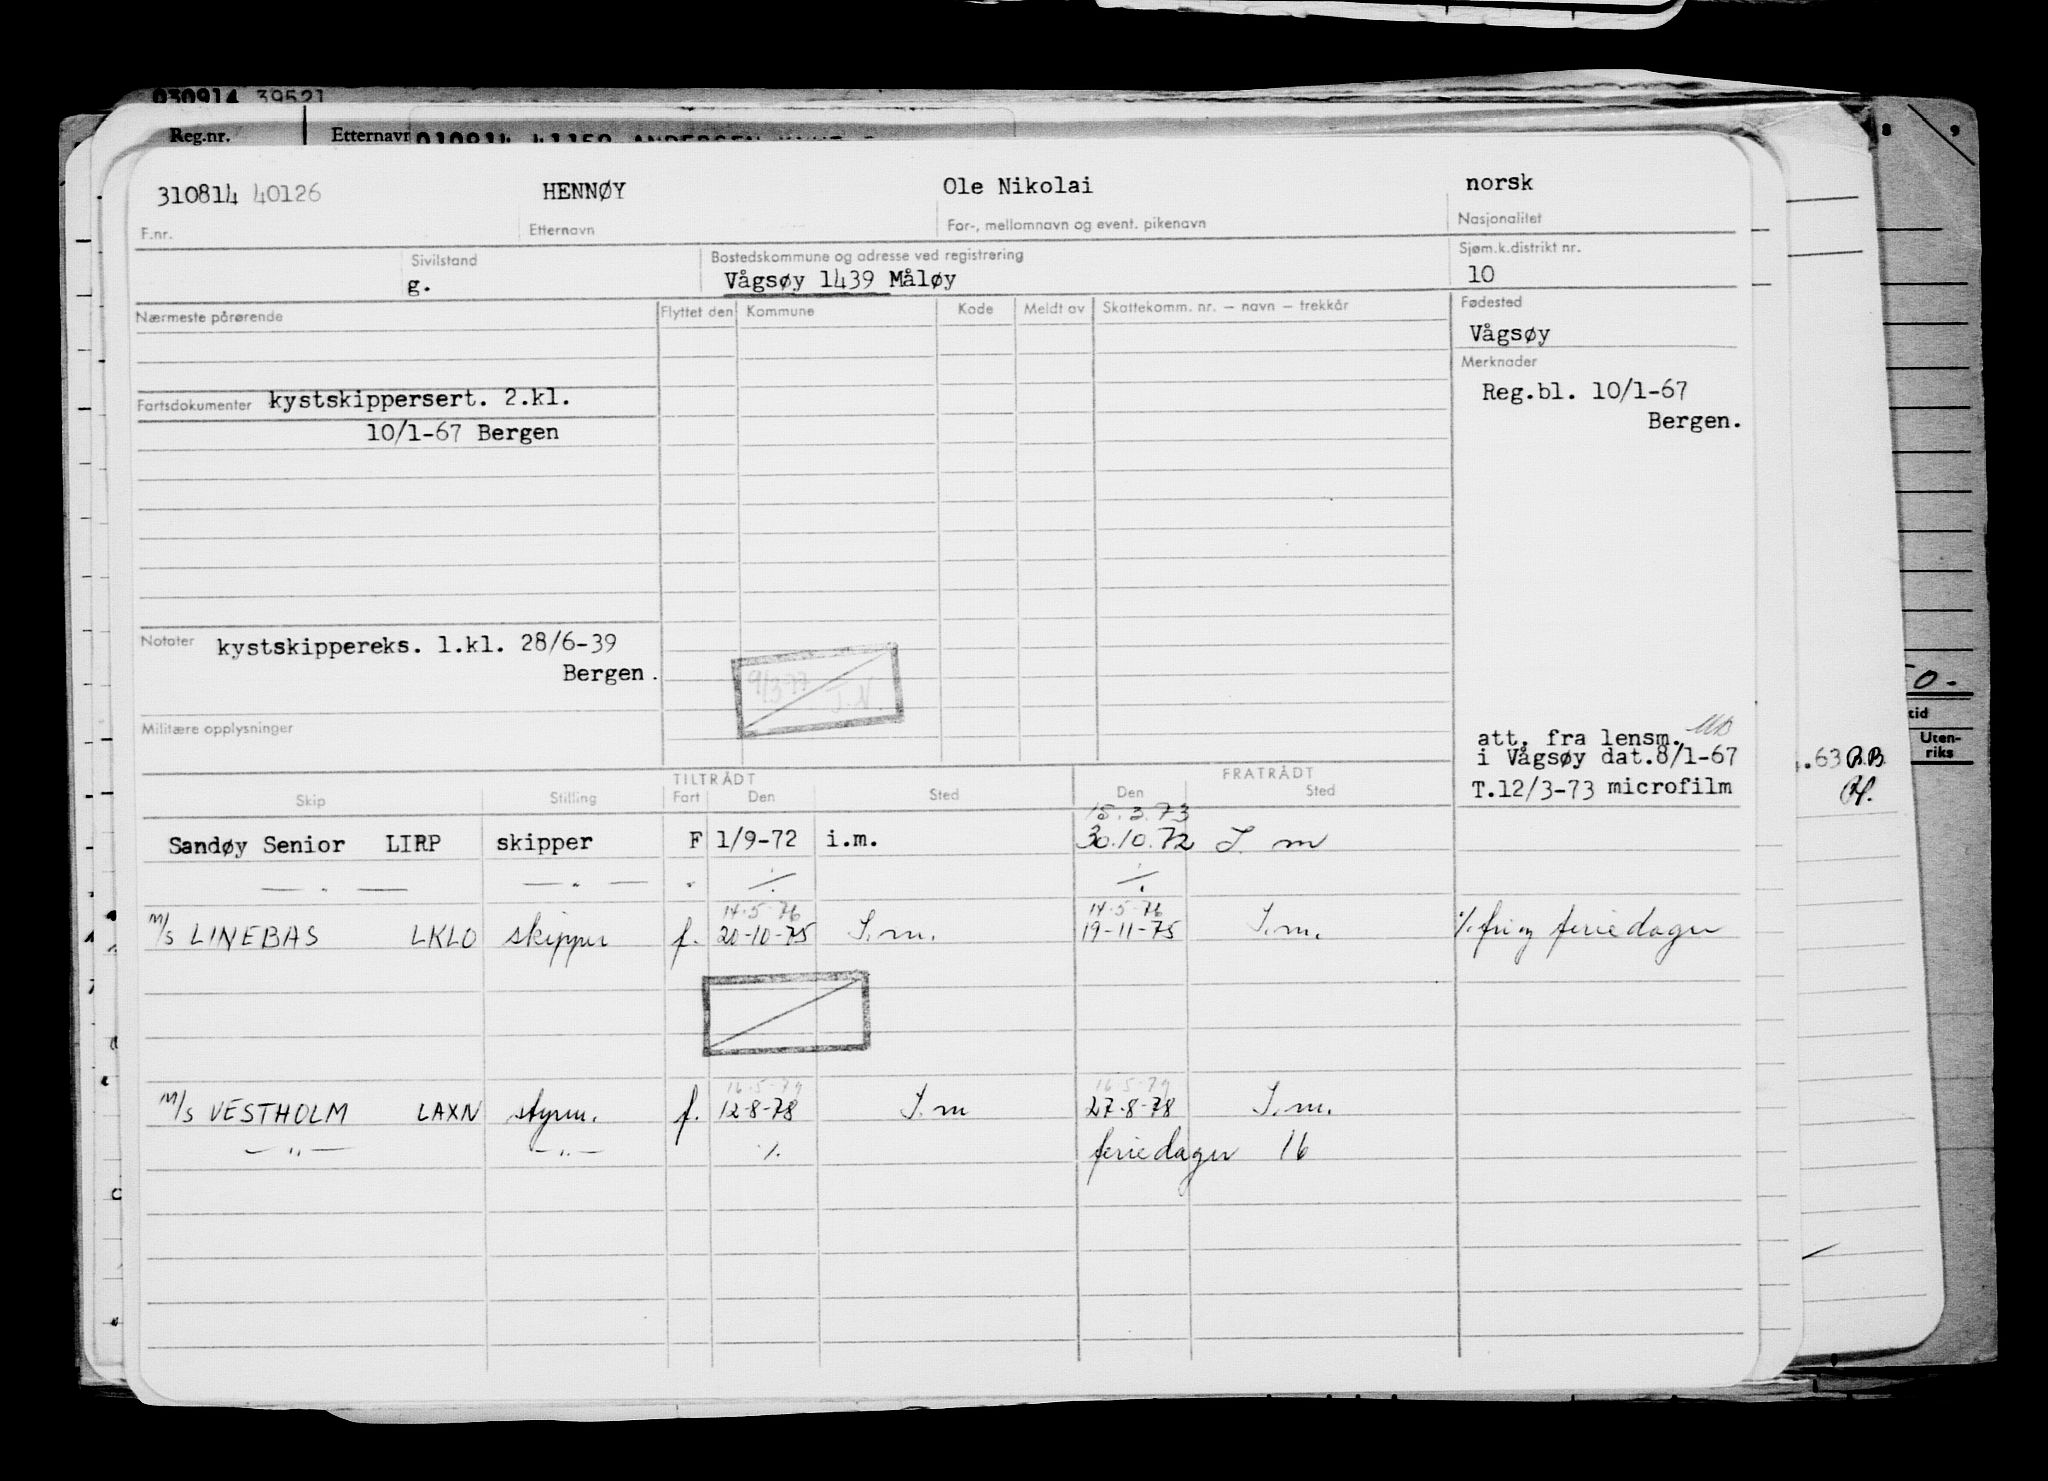 030914 39521
Reg.nr. Etternavn 010914 41159 ANDERSEN
8 9
310814 40126 HENNØY Ole Nikolai norsk
F.nr. Etternavn For-, mellomnavn og event. pikenavn Nasjonalitet
Sivilstand Bostedskommune og adresse ved registrering Sjøm.k.distrikt nr.
g. Vågsøy 1439 Måløy 10
Nærmeste pårørende Flyttet den Kommune Kode Meldt av Skattekomm. nr. – navn – trekkår Fødested
Vågsøy
Merknader
Fartsdokumenter kystskippersert. 2.kl. Reg.bl. 10/1-67
10/1-67 Bergen Bergen.
Notater kystskippereks. 1.kl. 28/6-39
Bergen.
9/3-77
J.N.
Militære opplysninger
att. fra lensm.
i Vågsøy dat.8/1-67
T.12/3-73 microfilm
0.-
tid
Uten-
riks
.63 B.B.
TILTRÅDT FRATRÅDT
Skip Stilling Fart Den Sted Den Sted
15.3.73
Sandøy Senior LIRP skipper F 1/9-72 i.m. 30.10.72 I. m
— " — — " — " ./. ./.
14.5-76 14.5-76
M/S LINEBAS LKLO skipper f. 20-10-75 I.m. 19-11-75 I.m. ./. fri og feriedager
16.5-79 16.5-79
M/S VESTHOLM LAXN styrm. f. 12-8-78 I.m 27-8-78 I.m.
— " — — " — ./. feriedager 16